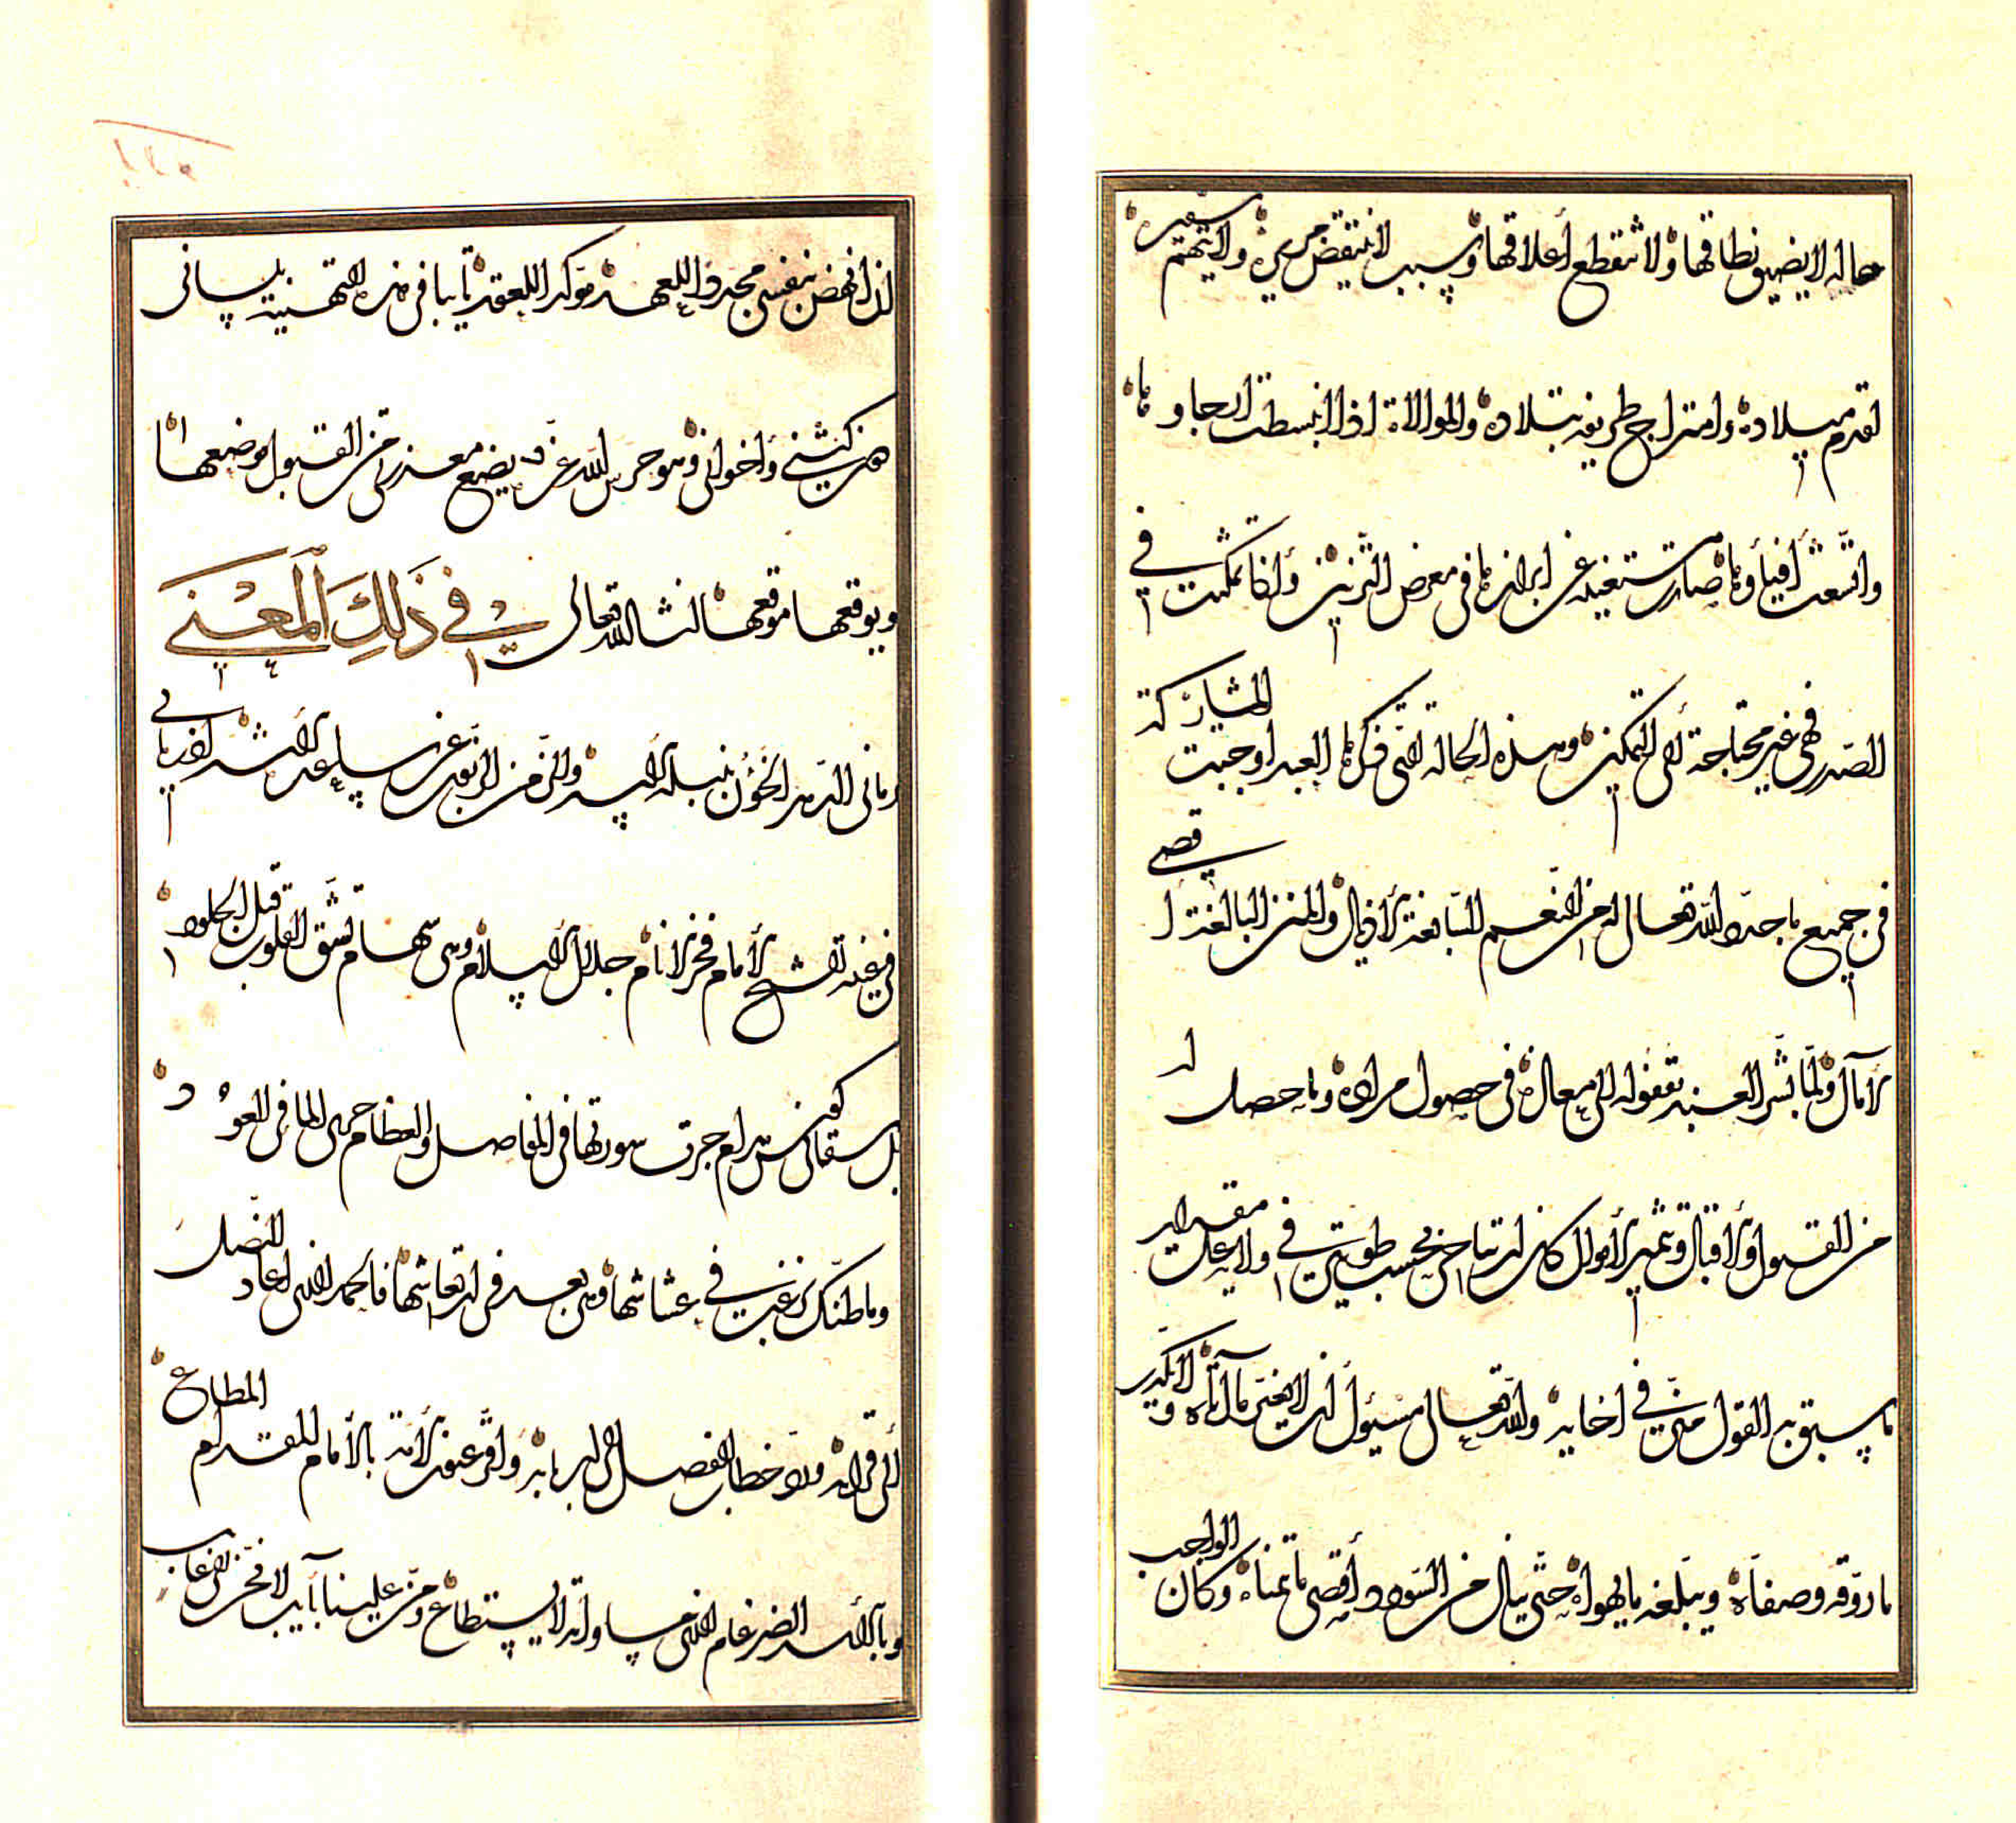 حاله لا يضيق نطاقها ولا تنقطع أعلاقها وسبب لا ينتقض مريره ولا يتهم سفيره
لقدم ميلاده وامتزاج طريفه بتلاده والموالاة اذا انبسطت ارجاؤها
واتسعت أفياؤها صارت مستغنية عن ابرازها في معرض التزيين واذا تمكنت في
الصدر فهي غير محتاجة الى التمكين وهذه الحالة التي ذكرها العبد اوجبت المشاركة
في جميع ما جدده الله تعالى له من النعم السابغة الأذيال والمنن البالغة اقصى
الآمال ولما بشر العبد بقفوله الى معاله في حصول مراده وما حصل له
من القبول والاقبال وتثمير الأموال كان ارتياحي بحسب طويتي في ولايه على مقدار
ما سبق به القول مني في اخايه والله تعالى مسئول أن لا يغير ما آتاه ولا يكدر
ما روقه وصفاه ويبلغه ما يهواه حتى ينال من السؤدد أقصى ما تمناه وكان الواجب
ان انهض بنفسي مجددا للعهد مؤكدا للعقد نايبا في هذه التهنية بلساني
عن كتبي واخواني وهو حرس الله عزه يضع معذرتي من القبول موضعها
ويوقعها موقعها ان شا الله تعالى في ذلك المعنى
رماني الدهر الخؤن بنبله والزمن
في غيبة الشيخ الأمام فخر الأنام جلال الاسلام وهي سهام تشق القلوب قبل الجلود
بل سقاني كوس مدام جرت سورتها في المفاصل والعظام جري الما في العود
وما ظنك برغبت في عشاشها وهي بعد في ارتعاشها فالحمد لله الذي اعاد النصل
الى قرابه ورد خطاب الفصل الى اربابه واقر عيون الأمة بالأمام المقدام المطاع
وبالأسد الضرغام الذي مساواته لا يستطاع ومن علينا بأيب لا فخر